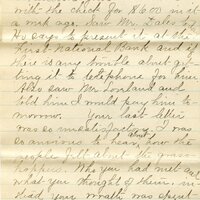 with the check for $600 inst
a mrk age. saw Mr. Dales &
He says to present it, at the
First National Bank and if
there is any trouble about get
ting it to telephone for him
Also saw Mr. Lonland and
told him I would pay him to
morrow. Your last letter
was so unsatisfactory. I was
so anxious to hear, how the
people felt about the grass
hoppers. Who you had met and
what you thought of them, in
stead, your wrath was spent